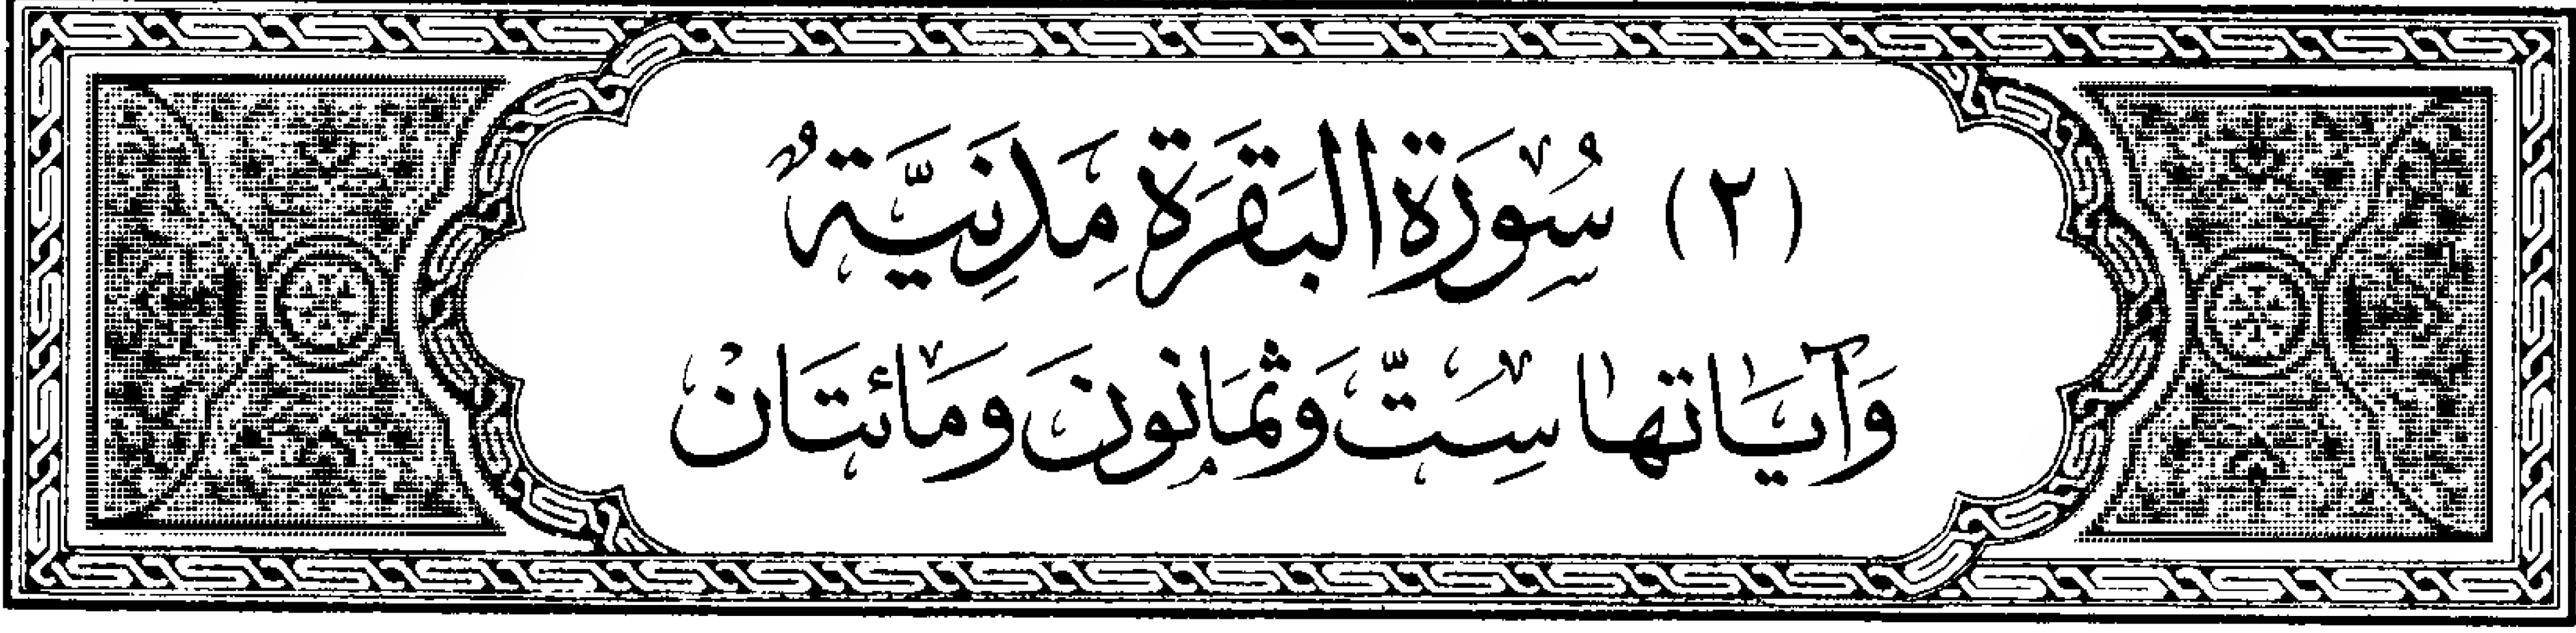 (٢) سُورَة البَقَرَة مَدَنِيَّةٌ
وَآيَاتها سِتّ وَثَمَانُون وَمَائتَانْ